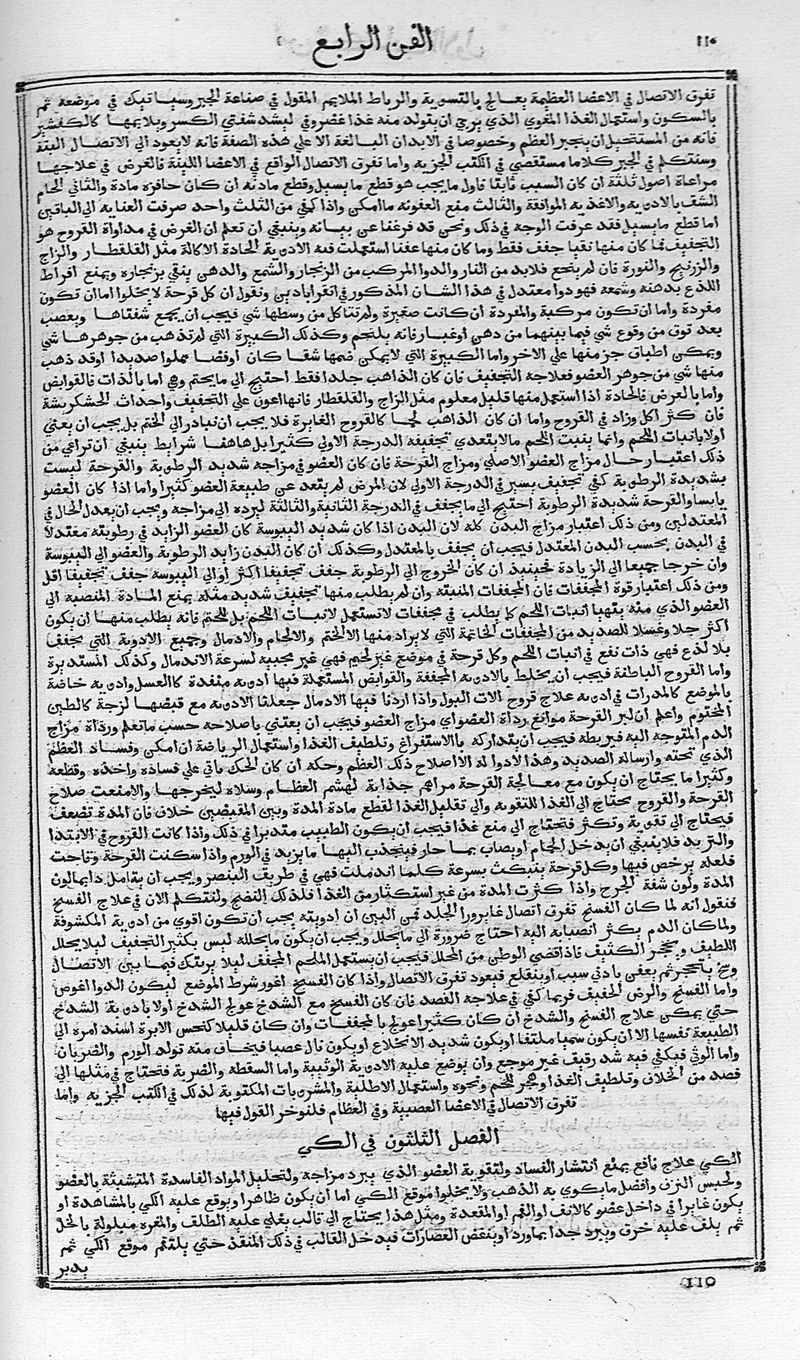 ١١٠
الفن الرابع
تفرق الاتصال في الاعضا العظيمة يعالج بالتسوية والرباط الملايم المقول في صناعة الجبر وسياتيك في موضعه ثم
بالسكون واستعمال الغذا المغري الذي يرجي ان يتولد منه غذا غضروفي ليشد شفتي الكسر ويلايمها كالكفشير
فانه من المستحيل ان ينجبر العظم وخصوصا في الابدان البالغة الا علي هذه الصفة فانه لا يعود الي الاتصال البتة
وسنتكلم في الجبر كلاما مستقصي في الكتب الجزيه واما تفرق الاتصال الواقع في الاعضا اللينة فالغرض في علاجها
مراعاة اصول ثلثة ان كان السبب ثابتا فاول ما يجب هو قطع ما يسيل وقطع مادته ان كان حافزه مادة والثاني الحام
الشف بالادويه والاغذيه الموافقة والثالث منع العفونه ما امكن واذا كفي من الثلث واحد صرفت العنايه الي الباقين
اما قطع ما يسيل فقد عرفت الوجه في ذلك ونحن قد فرغنا عن بيانه وينبغي ان تعلم ان الغرض في مداواة القروح هو
التجفيف فما كان منها نقيا جفف فقط وما كان منها عفنا استعملت فيه الادوية الحادة الاكالة مثل القلقطار والزاج
والزرنيخ والنورة فان لم ينجع فلا بد من النار والدوا المركب من الزنجار والشمع والدهن ينقي بزنجاره ويمنع افراط
اللذع بدهنه وشمعه فهو دوا معتدل في هذا الشان المذكور في اقراباذين ونقول ان كل قرحة لا يخلوا اما ان تكون
مفردة واما ان تكون مركبة والمفردة ان كانت صغيرة ولم تتاكل من وسطها شي فيجب ان يجمع شفتاها ويعصب
بعد توق من وقوع شي فيما بينهما من دهن او غبار فانه يلتحم وكذلك الكبيرة التي لم تذهب من جوهرها شي
ويمكن اطباق جز منها علي الاخر واما الكبيرة التي لا يمكن ضمها شقا كان او فضا مملوا صديدا او قد ذهب
منها شي من جوهر العضو فعلاجه التجفيف فان كان الذاهب جلدا فقط احتيج الي ما يختم وهي اما بالذات فالقوابض
واما بالعرض فالحادة اذا استعمل منها قليل معلوم مثل الزاج والقلقطار فانها اعون علي التجفيف واحداث الخشكريشة
فان كثر اكل وزاد في القروح واما ان كان الذاهب لحما كالقروح الغايرة فلا يجب ان نبادر الي الختم بل يجب ان يعتني
اولا بانبات اللحم وانما ينبت اللحم ما لا يتعدي تجفيفه الدرجة الاولي كثيرا بل هاهنا شرايط ينبغي ان تراعي من
ذلك اعتبار حال مزاج العضو الاصلي ومزاج القرحة فان كان العضو في مزاجه شديد الرطوبة والقرحة ليست
بشديدة الرطوبة كفي تجفيف يسير في الدرجة الاولي لان المرض لم يتعد عن طبيعة العضو كثيرا واما اذا كان العضو
يابسا والقرحة شديدة الرطوبة احتيج الي ما يجفف في الدرجة الثانية والثالثة ليرده الي مزاجه ويجب ان يعدل الحال في
المعتدلين ومن ذلك اعتبار مزاج البدن كله لان البدن اذا كان شديد اليبوسة كان العضو الزايد في رطوبته معتدلا
في البدن بحسب البدن المعتدل فيجب ان يجفف بالمعتدل وكذلك ان كان البدن زايد الرطوبة والعضو الي اليبوسة
وان خرجا جميعا الي الزيادة فحينيذ ان كان الخروج الي الرطوبة جفف تجفيفا اكثر او الي اليبوسة جفف تجفيفا اقل
ومن ذلك اعتبار قوة المجففات فان المجففات المنبتة وان لم يطلب منها تجفيف شديد مثله يمنع المادة المنصبه الي
العضو الذي منه يتهيا انبات اللحم كما يطلب في مجففات لا تستعمل لانبات اللحم بل للختم فانه يطلب منها ان يكون
اكثر جلا وغسلا للصديد من المجففات الخاتمة التي لا يراد منها الا الختم والالحام والادمال وجميع الادوية التي يجفف
بلا لذع فهي ذات نفع في انبات اللحم وكل قرحة في موضع غير لحيم فهي غير مجيبه لسرعة الاندمال وكذلك المستديرة
واما القروح الباطنة فيجب ان يخلط بالادويه المجففة والقوابض المستعملة فيها ادويه منفدة كالعسل وادويه خاصة
بالموضع كالمدرات في ادويه علاج قروح الات البول واذا اردنا فيها الادمال جعلنا الادويه مع قبضها لزجة كالطين
المختوم واعلم ان لبر القرحة موانع رداة العضو اي مزاج العضو فيجب ان يعتني باصلاحه حسب ما تعلم ورداة مزاج
الدم المتوجه اليه فيربطه فيجب ان يتداركه بالاستفراغ وتلطيف الغذا واستعمال الرياضة ان امكن وفساد العظم
الذي تحته وارساله الصديد وهذا لا دوا له الا اصلاح ذلك العظم وحكه ان كان الحك ياتي علي فساده واخذه وقطعه
وكثيرا ما يحتاج ان يكون مع معالجة القرحة مراهم جذابة لهشم العظام وسلاه ليخرجها والا منعت صلاح
القرحة والقروح تحتاج الي الغذا للتقويه والي تقليل الغذا لقطع مادة المدة وبين المقتضين خلاف فان المدة تضعف
فيحتاج الي تقوية وتكثر فتحتاج الي منع غذا فيجب ان يكون الطبيب متدبرا في ذلك واذا كانت القروح في الابتدا
والتزيد فلا ينبغي ان يدخل الحمام او يصاب بما حار فينجذب اليها ما يزيد في الورم واذا سكنت القرحة وقاحت
فلعله يرخص فيها وكل قرحة ينبكث بسرعة كلما اندملت فهي في طريق البنصر ويجب ان يتامل دايما لون
المدة ولون شفة الجرح واذا كثرت المدة من غير استكثار من الغذا فلذلك النضج ولنتكلم الان في علاج الفسخ
فنقول انه لما كان الفسخ تفرق اتصال غاير ورا الجلد فمن البين ان ادويته يجب ان تكون اقوي من ادوية المكشوفة
ولما كان الدم يكثر انصبابه اليه احتاج ضرورة الي ما يحلل ويجب ان يكون ما يحلله ليس بكثير التجفيف ليلا يحلل
اللطيف ويحجر الكثيف فاذا قضي الوطر من المحلل فيجب ان يستعمل الملحم المجفف ليلا يرتبك فيما بين الاتصال
وسخ يتحجر ثم يعفن بادني سبب او ينقلع فيعود تفرق الاتصال واذا كان الفسخ اغور شرط الموضع ليكون الدوا اغوص
واما الفسخ والرض الخفيف فربما كفي في علاجه الفصد فان كان الفسخ مع الشدخ عولج الشدخ اولا بادوية الشدخ
حتي يمكن علاج الفسخ والشدخ ان كان كثيرا عولج بالمجففات وان كان قليلا كنخس الابرة اسند امره الي
الطبيعة نفسها الا ان يكون سميا ملتفا او يكون شديد الانخلاع او يكون نال عصبا فيخاف منه تولد الورم والضربان
واما الوثي فيكفي فيه شد رقيف غير موجع وان يوضع عليه الادوية الوثيية واما السقطه والضربة فتحتاج في مثلها الي
فصد من الخلاف وتلطيف الغذا وهجر للحم ونحوه واستعمال الاطلية والمشروبات المكتوبة لذلك في الكتب الجزيه واما
تفرق الاتصال في الاعضا العصبية وفي العظام فلنوخر القول فيها
الفصل الثلثون في الكي
الكي علاج نافع يمنع انتشار الفساد ولتقوية العضو الذي يبرد مزاجه ولتحليل المواد الفاسدة المتشبثة بالعضو
ولحبس النزف وافضل ما يكوي به الذهب ولا يخلوا موقع الكي اما ان يكون ظاهرا ويوقع عليه الكي بالمشاهدة او
يكون غايرا في داخل عضو كالانف او الفم او المقعدة ومثل هذا يحتاج الي قالب يغلي عليه الطلف والمغره مبلولة بالخل
ثم يلف عليه خرق ويبرد جدا بماورد او ببعض العصارات فيدخل القالب في ذلك المنفذ حتي يلتقم موقع الكي ثم
يدبر
110